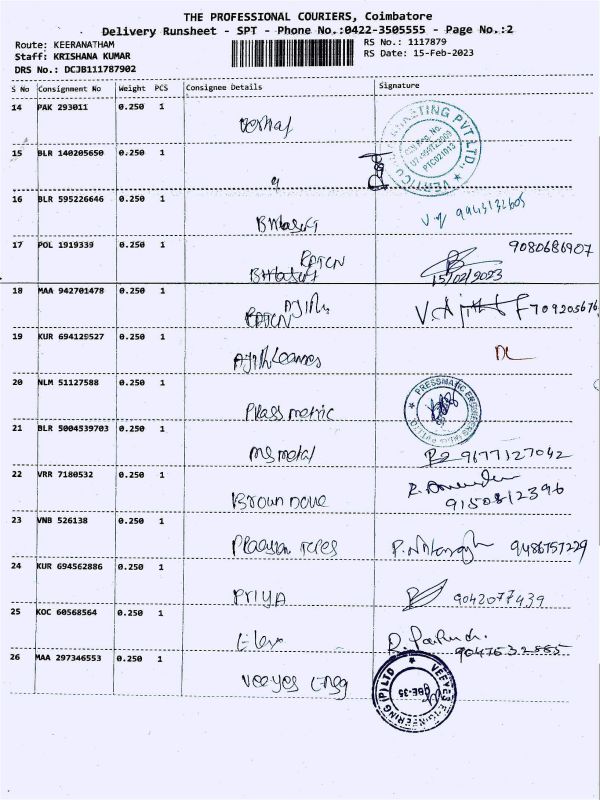 THE PROFESSIONAL COURIERS, Coimbatore
Delivery Runsheet - SPT - Phone No.:0422-3505555 - Page No.:2
Route: KEERANATHAM
RS No.: 1117879
Staff: KRISHANA KUMAR
RS Date: 15-Feb-2023
DRS No.: DCJB111787902
S No Consignment No Weight PCS Consignee Details Signature
14 PAK 293011 0.250 1
15 BLR 140205650 0.250 1
16 BLR 595226646 0.250 1
9943132605
17 POL 1919339 0.250 1
9080686907
15/02/2023
18 MAA 942701478 0.250 1
709205676
19 KUR 694129527 0.250 1
DL
20 NLM 51127588 0.250 1
PRESSMATIC ENGINEERS
Press metric
21 BLR 5004539703 0.250 1
Ms metal
9677127042
22 VRR 7180532 0.250 1
Brown dove
9150812396
23 VNB 526138 0.250 1
9486757229
24 KUR 694562886 0.250 1
PRIYA
9042077439
25 KOC 60568564 0.250 1
26 MAA 297346553 0.250 1
Veeyes Engg
VEEYES ENGINEERING (P) LTD
CBE-35